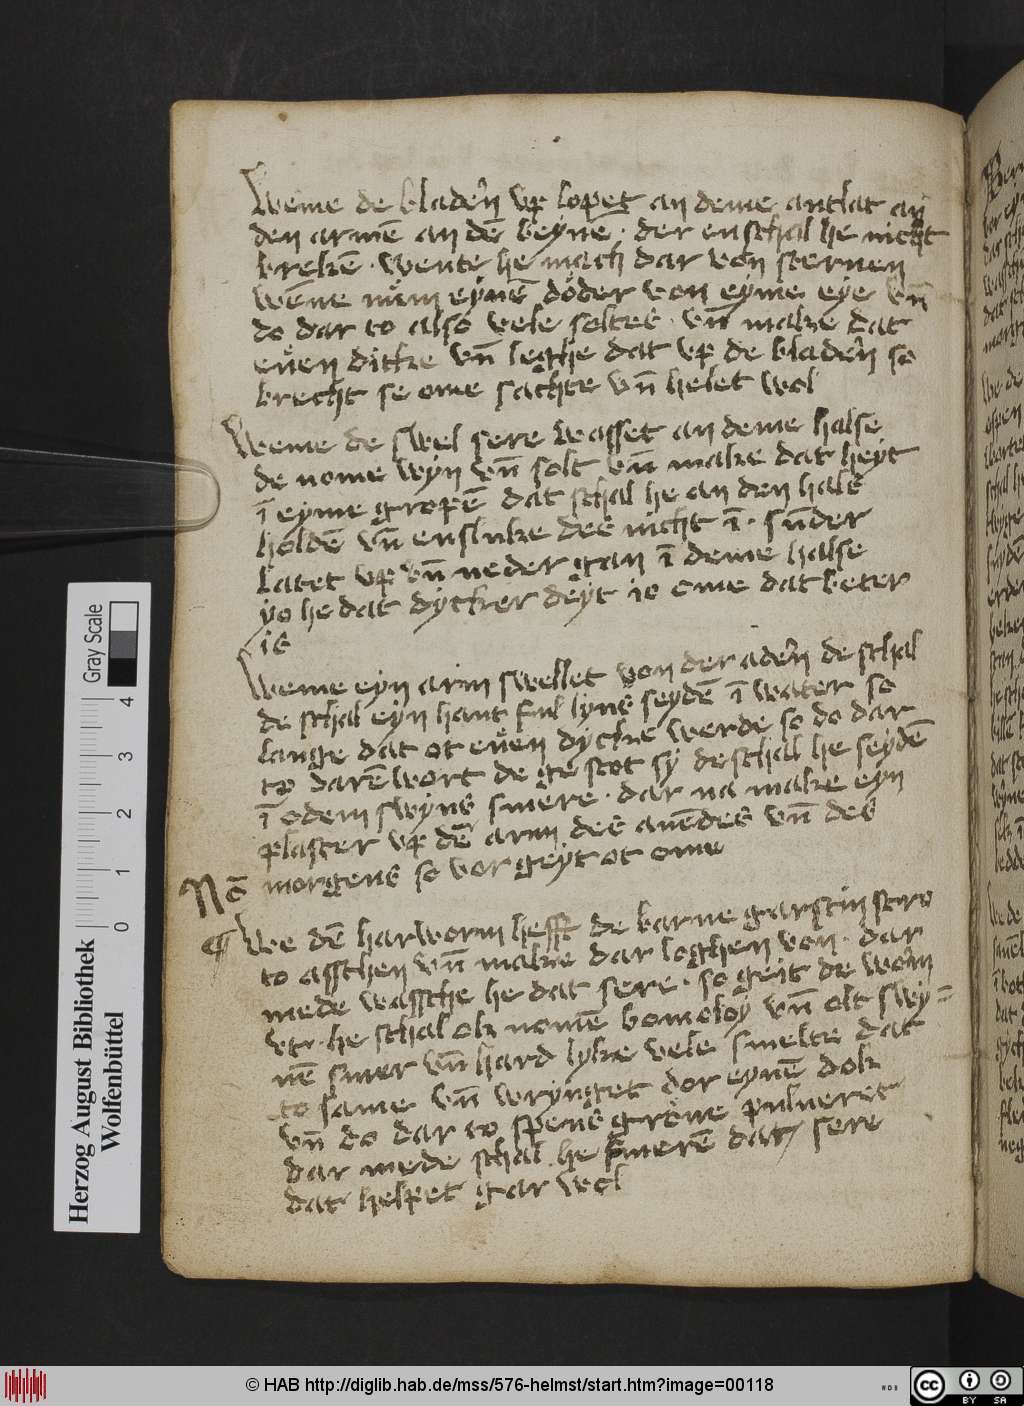 Weme de bladeꝛn vp lopet an deme antlat an
den armē an dē beyne · der enschal he nicht
brekē · wente he mach dar von sternen
wēne nům eynē döder von eyme eye vn̄
do dar to also vele soltes · vn̄ make dat
euen dicke vn̄ leghe dat vp de bladeꝛn so
brecht se ome sachte vn̄ helet wol
Weme de swel sere wasset an deme halse
de nome wyn vn̄ solt vn̄ make dat heyt
ī eyme gropē dat schal he an den hals
holdē vn̄ ensluke des nicht ī · sund̄er
latet vp vn̄ neder gan ī deme halse
yo he dat dycker deyt io ome dat beter
is
Weme eyn arm swellet von der adeꝛn de schal
de schal eyn hant ful lyns seydē ī water so
lange dat ot euen dycke werde so do dar
to darē wort de ge stot sy de schall he seydē
ī odem swyns smere · dar na make eyn
plaster vp dē arm des auēdes vn̄ des
morgens so vor geyt ot ome
Nō
¶ We dē harworm hefft de barne garstin stro
to asschen vn̄ make dar loghen von · dar
mede wassche he dat sere · so geit de woꝛm
vtꝛ · he schal ok nomē bomoloy vn̄ olt swy=
nē smer vn̄ hard lyke vele smelte dat
to same vn̄ wrynget dor eynē dok
vn̄ do dar to spens gröne puluert
dar mede schal he smerē dat / sere
dat helpet gar wol
Herzog August Bibliothek
Wolfenbüttel
Gray Scale
0 1 2 3 4
© HAB http://diglib.hab.de/mss/576-helmst/start.htm?image=00118
WDB
cc BY SA